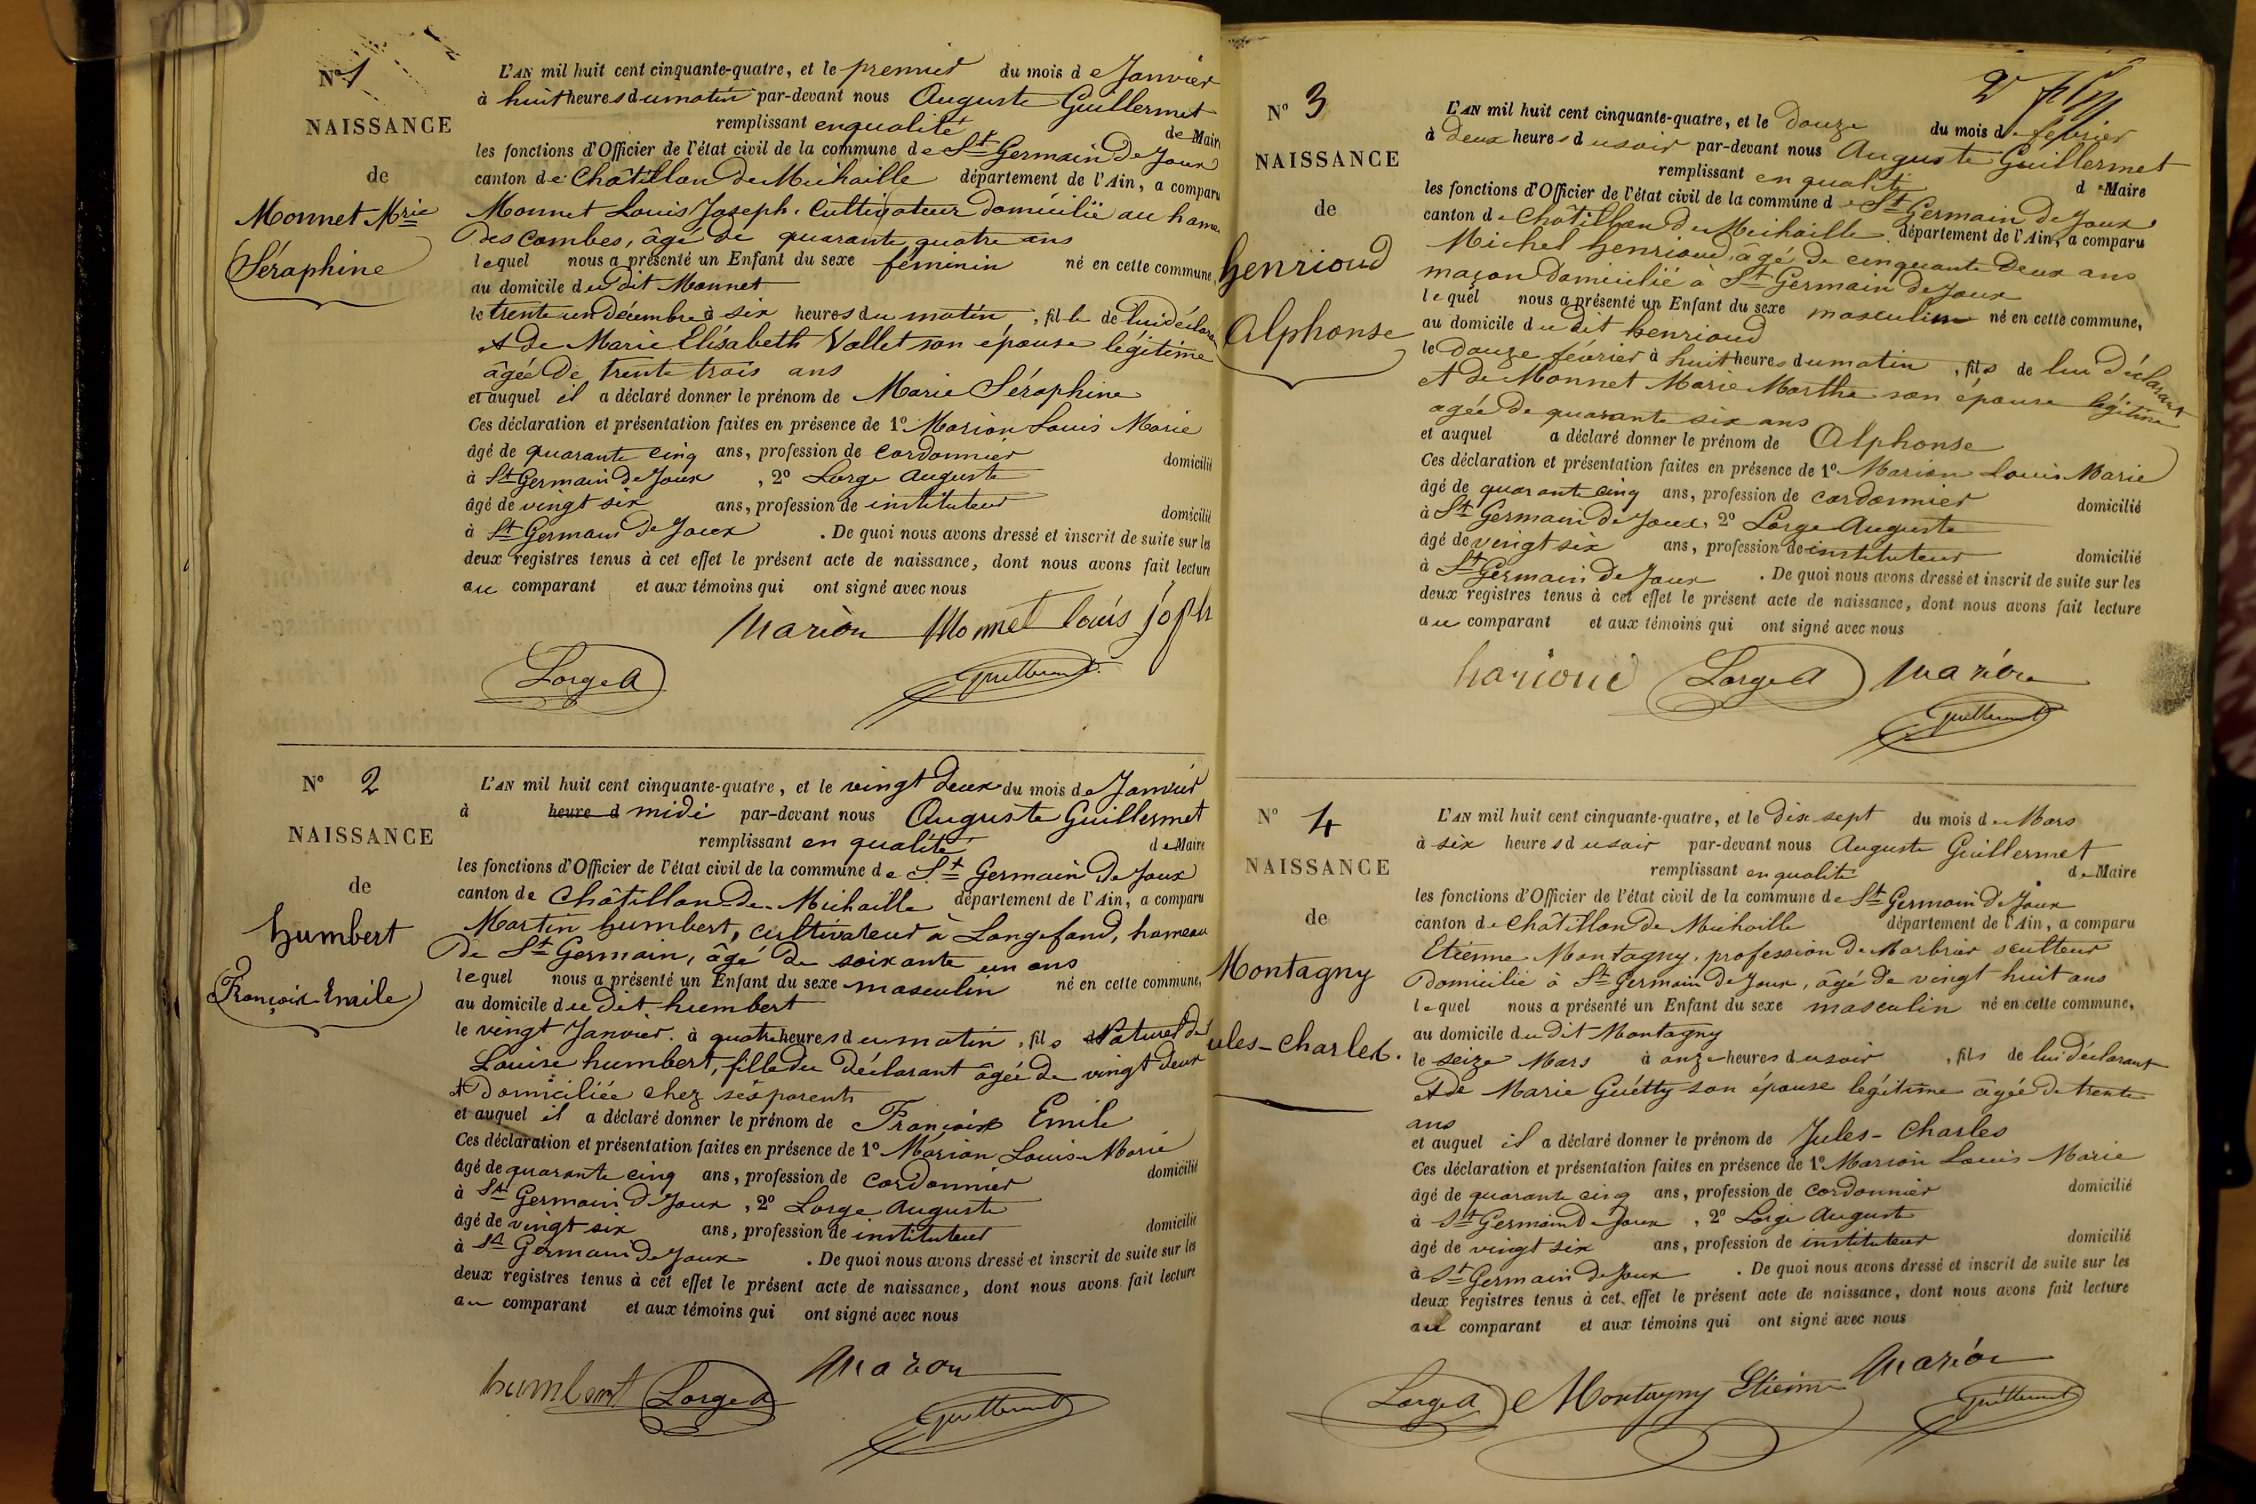 N° 1
NAISSANCE
de
Monnet Mrie
Séraphine
L'AN mil huit cent cinquante-quatre, et le premier du mois de Janvier
à huit heures du matin par-devant nous Auguste Guillermet
remplissant en qualité de Maire
les fonctions d'Officier de l'état civil de la commune de St Germain De Joux
canton de Châtillon De Michaille département de l'Ain, a comparu
Monnet Louis Joseph, Cultivateur domicilié au hameau
Des Combes, âgé de quarante quatre ans
lequel nous a présenté un Enfant du sexe féminin né en cette commune,
au domicile du dit Monnet
le trente un Décembre à six heures du matin, fille de lui déclarant
et de Marie Elisabeth Vallet son épouse légitime
âgée De trente trois ans
et auquel il a déclaré donner le prénom de Marie Séraphine
Ces déclaration et présentation faites en présence de 1° Marion Louis Marie
âgé de quarante cinq ans, profession de Cordonnier domicilié
à St Germain De Joux, 2° Lorge Auguste
âgé de vingt six ans, profession de instituteur domicilié
à St Germain De Joux. De quoi nous avons dressé et inscrit de suite sur les
deux registres tenus à cet effet le présent acte de naissance, dont nous avons fait lecture
au comparant et aux témoins qui ont signé avec nous
Marion Monnet louis joph
Lorge A Guillermet
N° 2
NAISSANCE
de
humbert
François Emile
L'AN mil huit cent cinquante-quatre, et le vingt Deux du mois de Janvier
à heure d midi par-devant nous Auguste Guillermet
remplissant en qualité de Maire
les fonctions d'Officier de l'état civil de la commune de St Germain De Joux
canton de Châtillon De Michaille département de l'Ain, a comparu
Martin humbert, cultivateur à Longefand, hameau
De St Germain, âgé De soixante un ans
lequel nous a présenté un Enfant du sexe masculin né en cette commune,
au domicile du dit humbert
le vingt Janvier à quatre heures du matin, fils Naturel de
Louise humbert, fille du Déclarant âgée De vingt deux
et Domiciliée chez ses parents
et auquel il a déclaré donner le prénom de François Emile
Ces déclaration et présentation faites en présence de 1° Marion Louis Marie
âgé de quarante cinq ans, profession de Cordonnier domicilié
à St Germain De Joux, 2° Lorge Auguste
âgé de vingt six ans, profession de instituteur domicilié
à St Germain De Joux. De quoi nous avons dressé et inscrit de suite sur les
deux registres tenus à cet effet le présent acte de naissance, dont nous avons fait lecture
au comparant et aux témoins qui ont signé avec nous
humbert Lorge A Marion
Guillermet
N° 3
NAISSANCE
de
henrioud
Alphonse
L'AN mil huit cent cinquante-quatre, et le Douze du mois de février
à Deux heures du soir par-devant nous Auguste Guillermet
remplissant en qualité d Maire
les fonctions d'Officier de l'état civil de la commune de St Germain De Joux
canton de Châtillon De Michaille département de l'Ain, a comparu
Michel henrioud, âgé De cinquante Deux ans
maçon Domicilié à St Germain De Joux
lequel nous a présenté un Enfant du sexe masculin né en cette commune,
au domicile du dit henrioud
le Douze février à huit heures du matin, fils de lui Déclarant
et de Monnet Marie Marthe son épouse légitime
âgée De quarante six ans
et auquel a déclaré donner le prénom de Alphonse
Ces déclaration et présentation faites en présence de 1° Marion Louis Marie
âgé de quarante cinq ans, profession de cordonnier domicilié
à St Germain De Joux, 2° Lorge Auguste
âgé de vingt six ans, profession de instituteur domicilié
à St Germain De Joux. De quoi nous avons dressé et inscrit de suite sur les
deux registres tenus à cet effet le présent acte de naissance, dont nous avons fait lecture
au comparant et aux témoins qui ont signé avec nous
harioud Lorge A Marion
Guillermet
N° 4
NAISSANCE
de
Montagny
ules-Charles.
L'AN mil huit cent cinquante-quatre, et le Dix sept du mois de Mars
à six heures du soir par-devant nous Auguste Guillermet
remplissant en qualité de Maire
les fonctions d'Officier de l'état civil de la commune de St Germain De Joux
canton de Châtillon De Michaille département de l'Ain, a comparu
Etienne Montagny, profession De Marbrier sculteur
Domicilié à St Germain De Joux, âgé De vingt huit ans
lequel nous a présenté un Enfant du sexe masculin né en cette commune,
au domicile du dit Montagny
le seize Mars à onze heures du soir, fils de lui déclarant
et De Marie Guétty son épouse légitime âgée De trente
ans
et auquel il a déclaré donner le prénom de Jules-Charles
Ces déclaration et présentation faites en présence de 1° Marion Louis Marie
âgé de quarante cinq ans, profession de Cordonnier domicilié
à St Germain De Joux, 2° Lorge Auguste
âgé de vingt six ans, profession de instituteur domicilié
à St Germain De Joux. De quoi nous avons dressé et inscrit de suite sur les
deux registres tenus à cet effet le présent acte de naissance, dont nous avons fait lecture
au comparant et aux témoins qui ont signé avec nous
Lorge A Montagny Etienne Marion
Guillermet